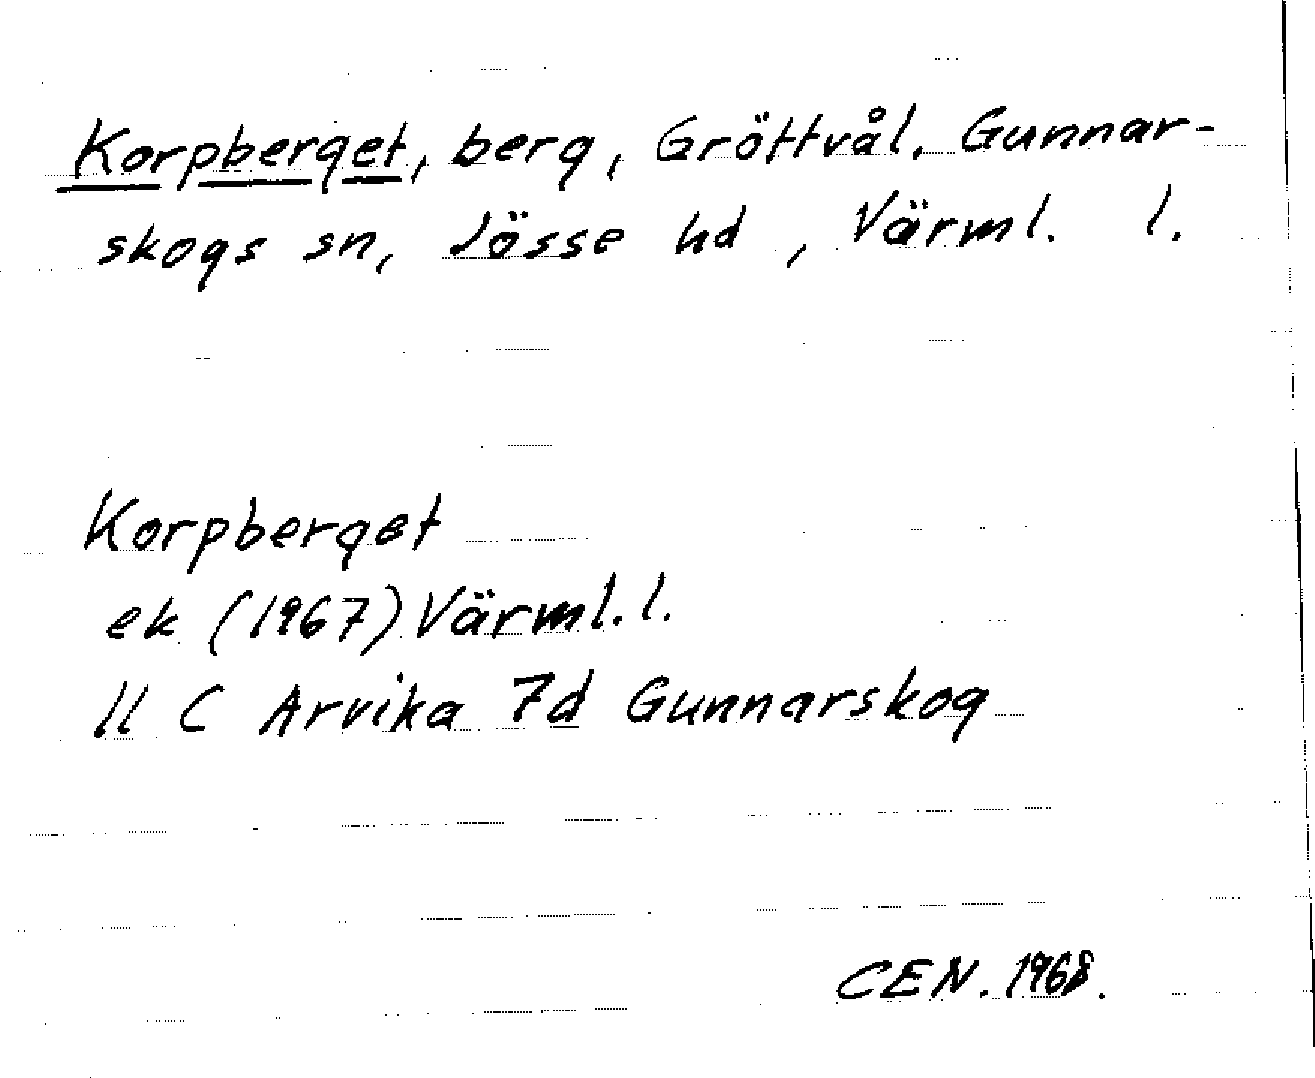 Korpberget, berg, Gröttvål, Gunnar-
skogs sn, Jösse hd, Värml. l.
Korpberget
ek (1967) Värml. l.
11 C Arvika 7d Gunnarskog
CEN. 1968.